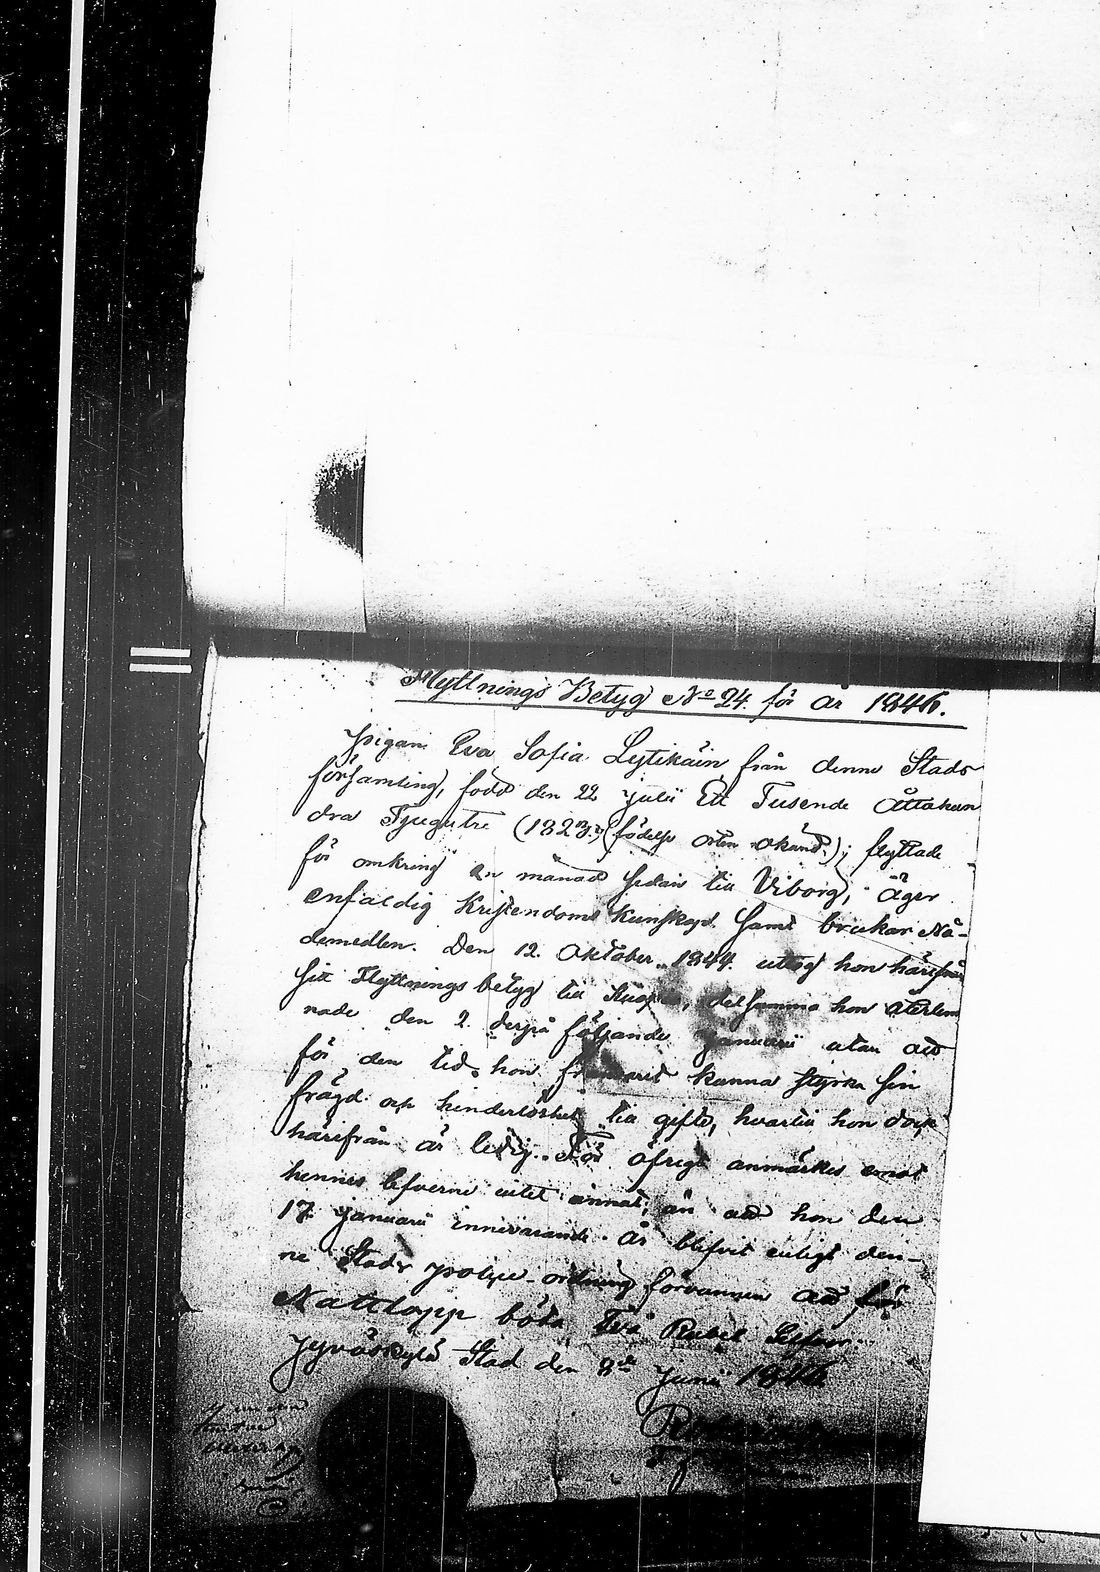 Flyttnings Betyg No 24. för år 1846.
Pigan Eva Sofia Lytikäin från denna Stads
församling, född den 22 Julii Ett Tusende Åttahun
dra Tjugutre (1823.) (födelse orten okänd.); flyttade
för omkring en månad sedan till Viborg; äger
enfaldig Kristendoms kunskap samt brukar Nå-
demedlen. Den 12. Oktober 1844. uttog hon härifrån
sitt Flyttnings betyg till detsamma hon återlem
nade den 2. derpå följande Januarii utan att
för den tid hon kunna styrka sin
frägd och hinderlöshet till gifte, hvartill hon dock
härifrån är ledig. För öfrigt anmärkes emot
hennes lefverne intet annat, än att hon den
17. Januarii innevarande år blifvit enligt den-
na Stads police-ordning förvunnen att för
Nattlopp böta Två Rubel Silfver.
Jyväskylä Stad den 8de Junii 1846